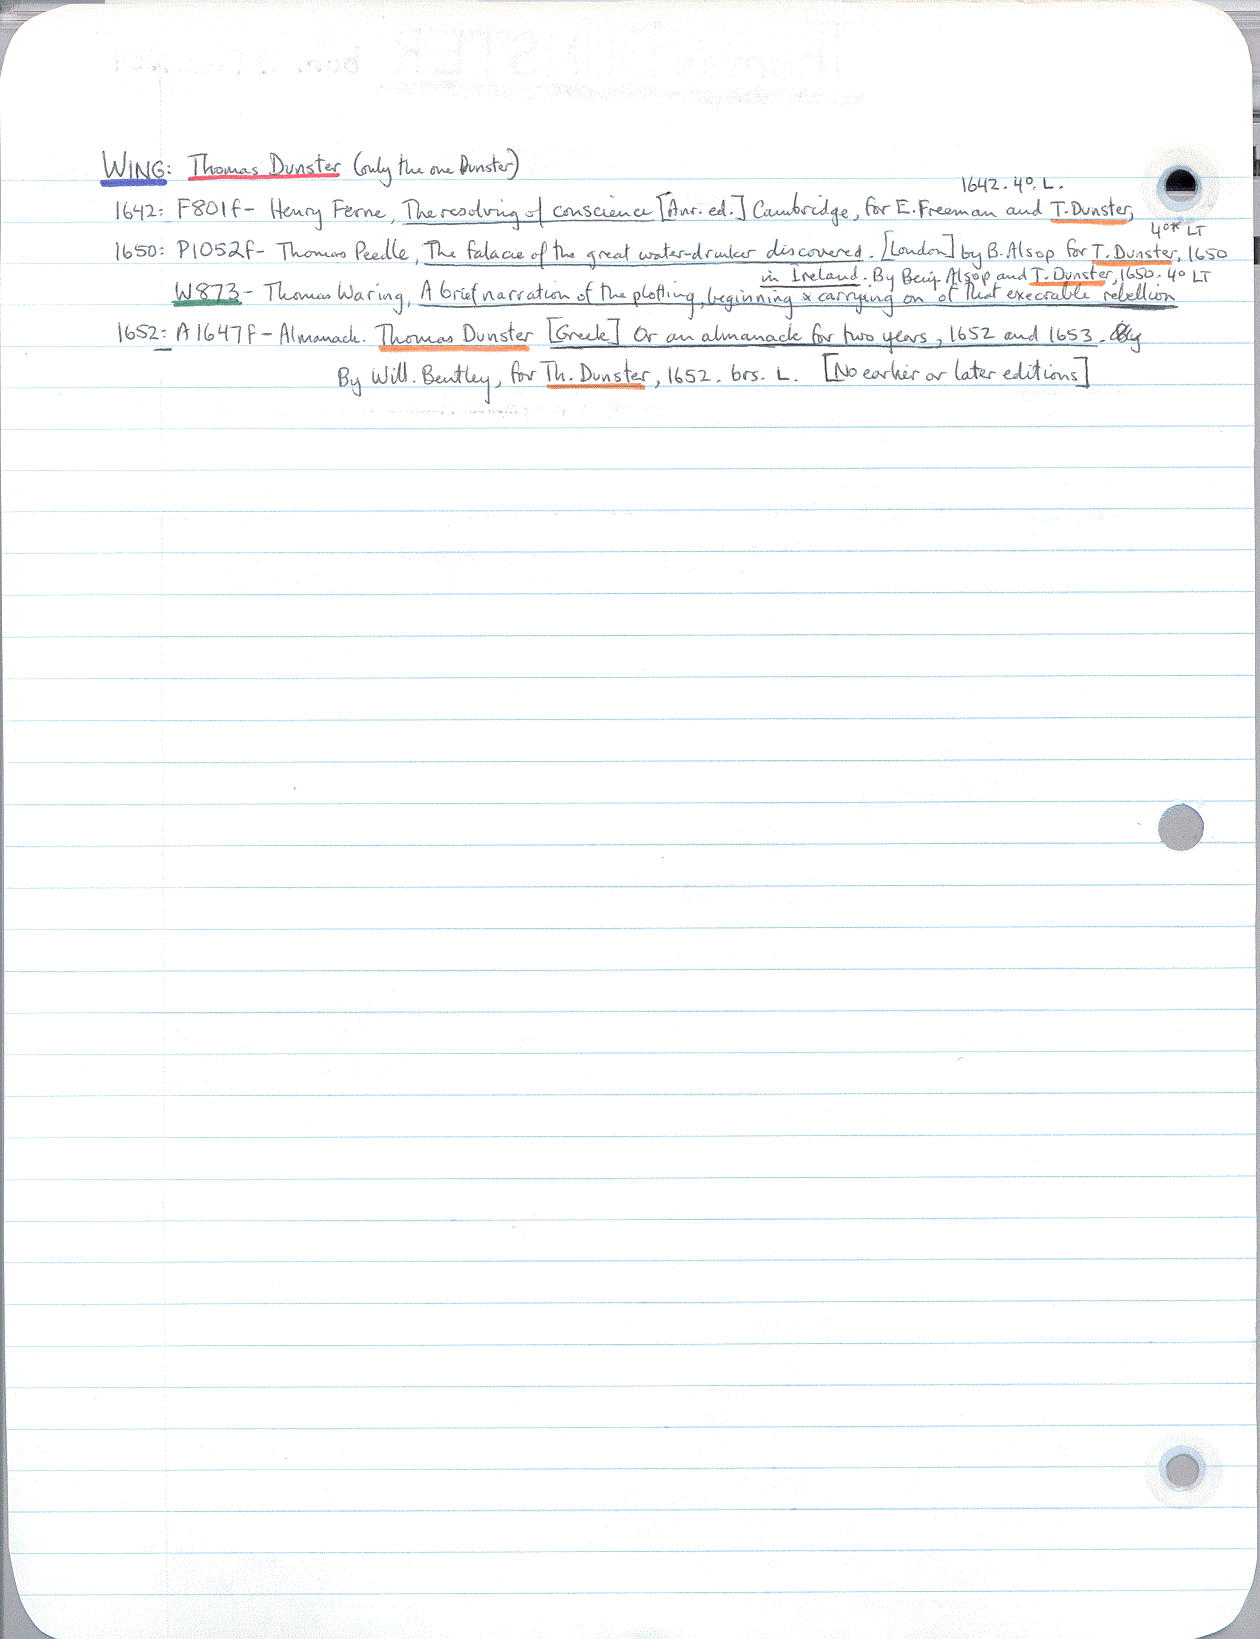 WING: Thomas Dunster (only the one Dunster)
1642. 4º. L.
1642: F801f- Henry Ferne, The resolving of conscience [Anr. ed.] Cambridge, for E. Freeman and T. Dunster,
4º* LT
1650: P1052f- Thomas Peedle, The falacie of the great water-drinker discovered. [London] by B. Alsop for T. Dunster, 1650
in Ireland. By Benj. Alsop and T. Dunster, 1650. 4º LT
W873- Thomas Waring, A brief narration of the plotting, beginning & carrying on of that execrable rebellion
1652: A1647f- Almanack. Thomas Dunster [Greek] Or an almanack for two years, 1652 and 1653.
By Will. Bentley, for Th. Dunster, 1652. brs. L. [No earlier or later editions]